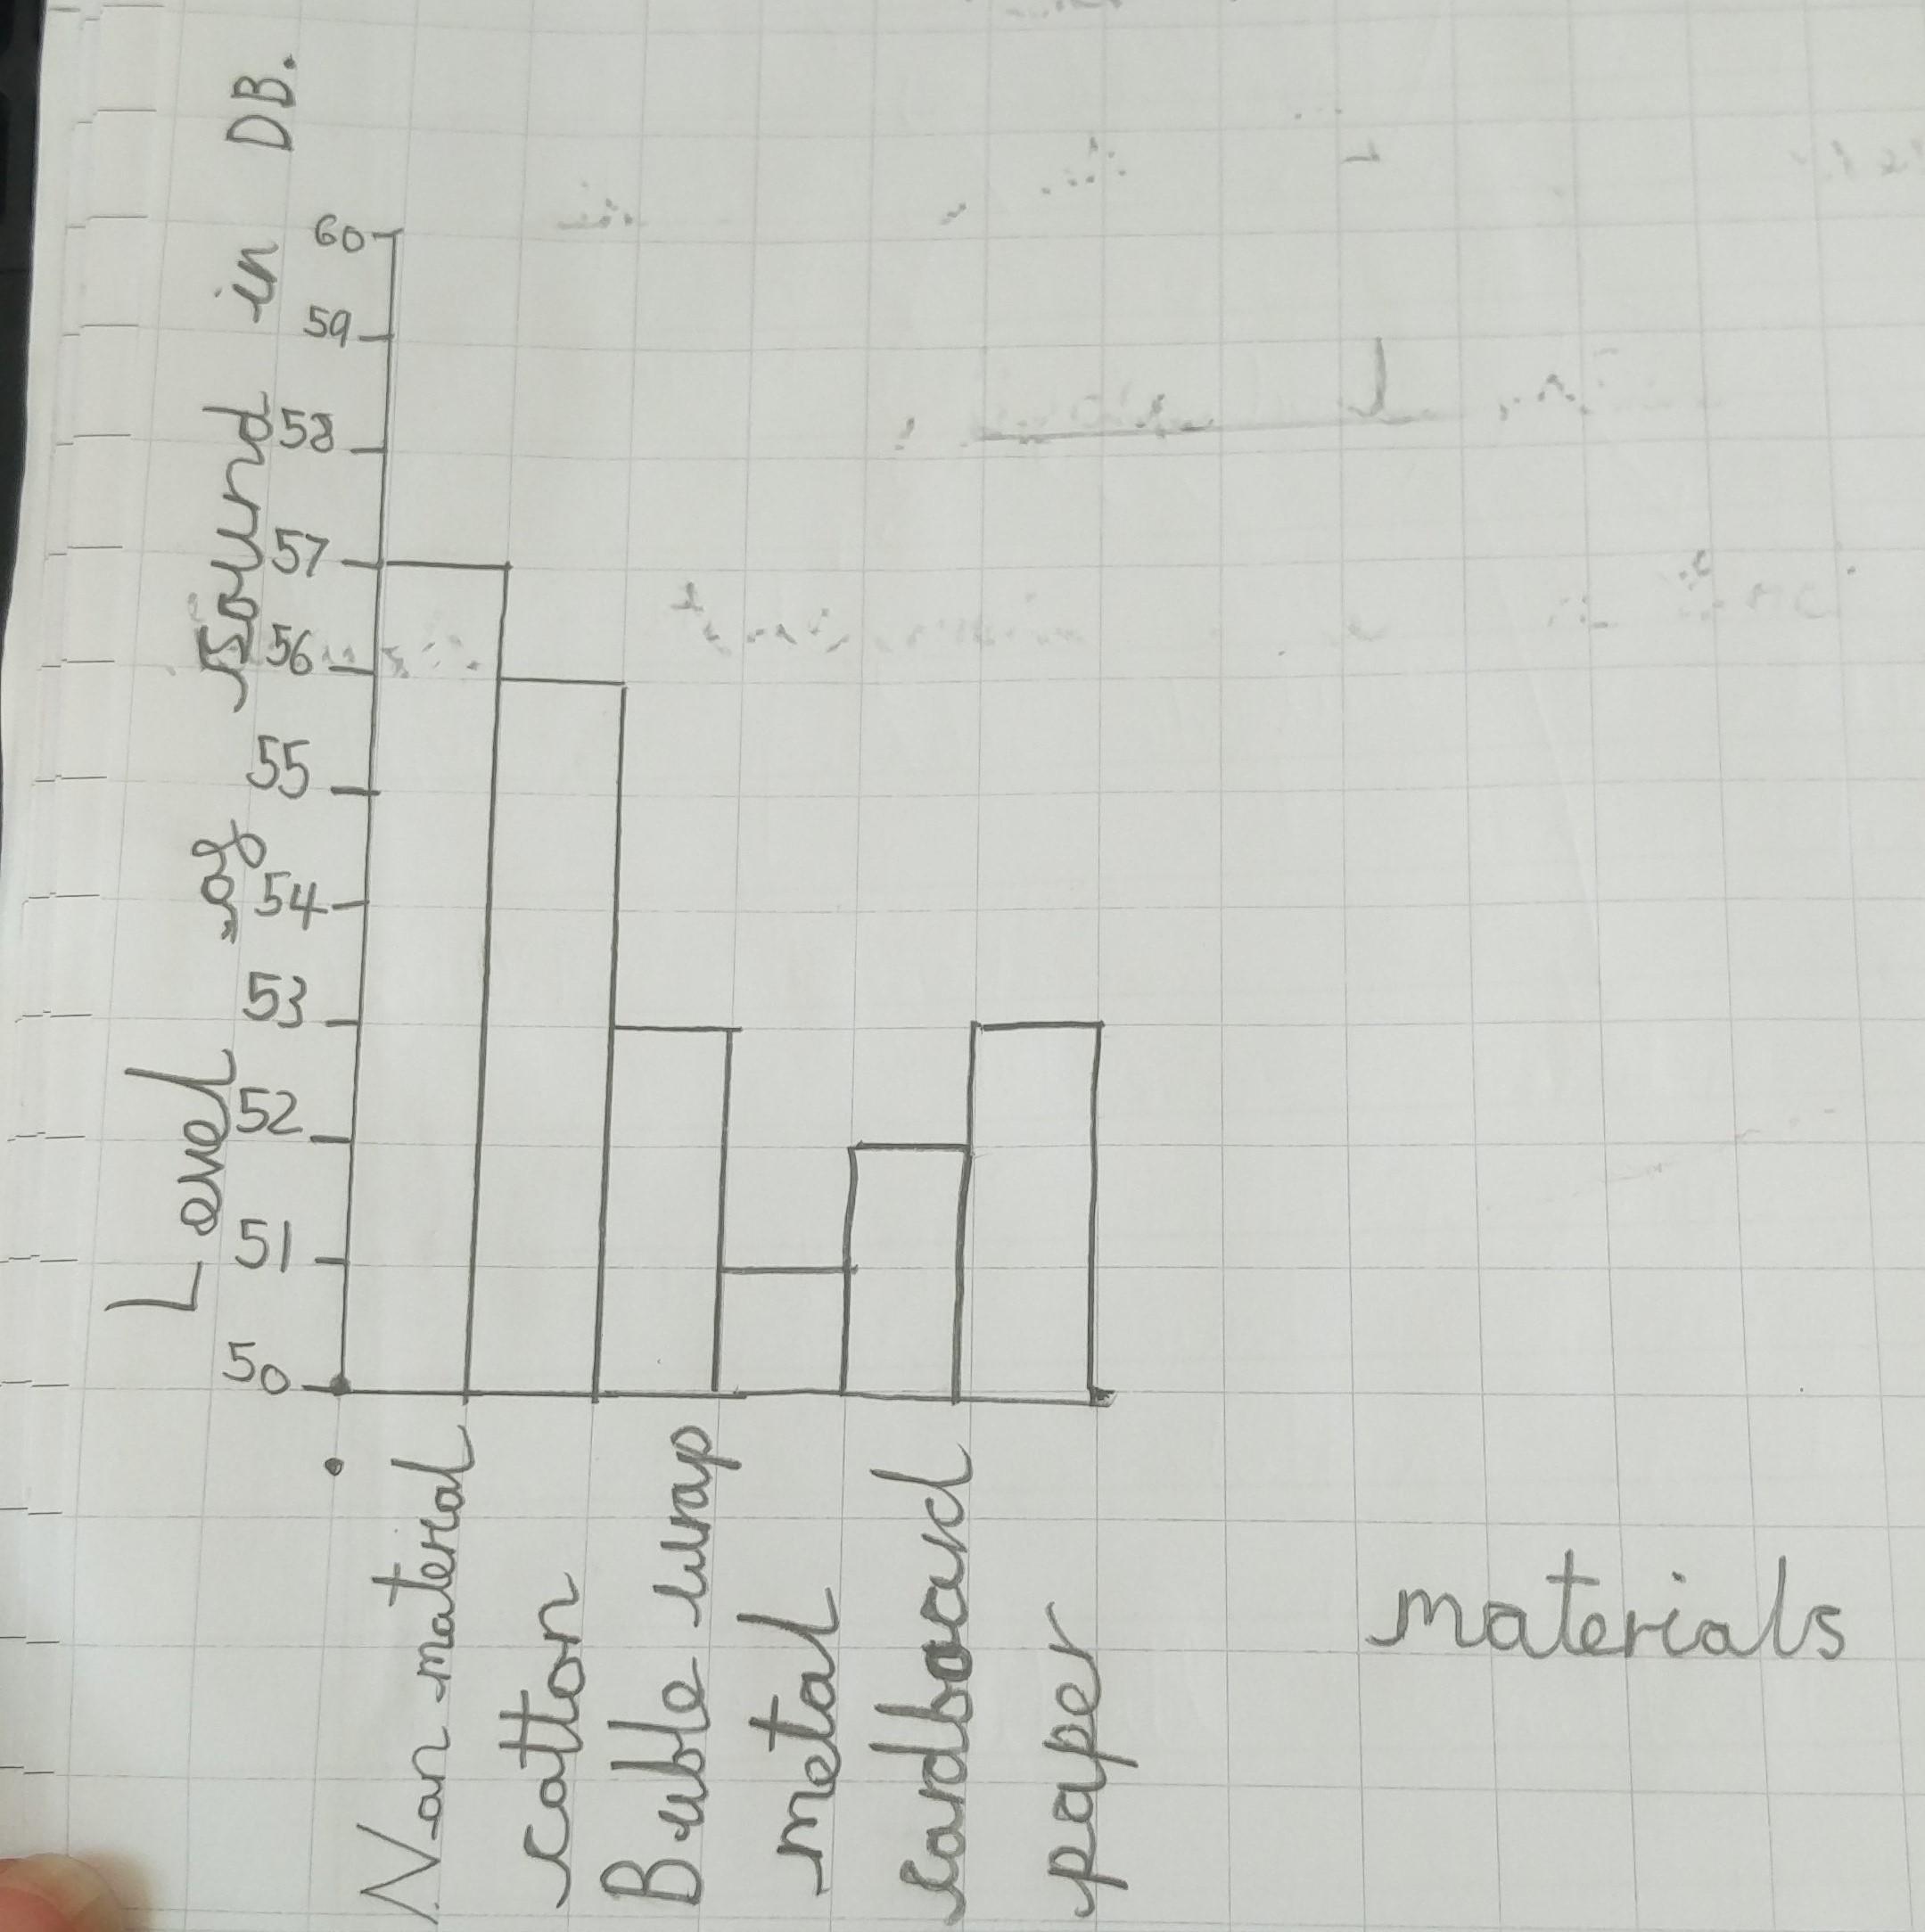 Level of Sound in DB.
60
59
58
57
56
55
54
53
52
51
50
Non material
cotton
Buble wrap
metal
cardboard
paper
materials